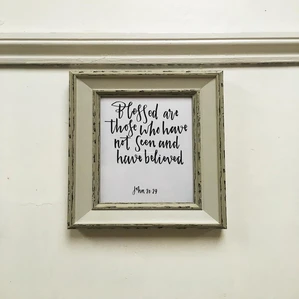 Blessed are
those who have
not seen and
have believed
John 20:29